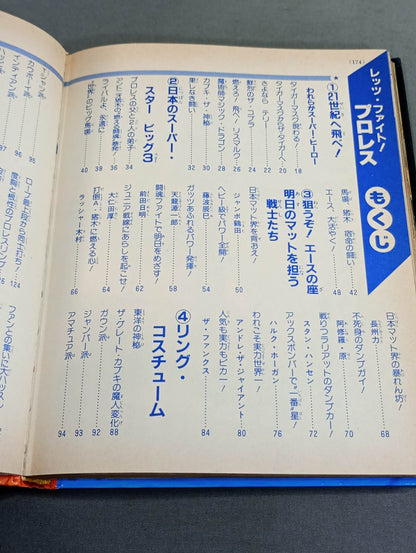 (174)
レッツ・ファイト!
プロレス
もくじ
★①21世紀へ飛べ!
われらがスーパーヒーロー
タイガーマスク現わる!………18
タイガーマスクからザ・タイガーへ…20
さよなら テリー………22
鮮烈のザ・コブラ………24
燃えろ!飛べ!リスマルク………26
魔術師マジック・ドラゴン………28
カブキ・ザ・神秘………30
果しなき闘い………32
②日本のスーパー・
スター ビッグ3
プロレスの父と2人の弟子………34
ライバルよ、永遠に………38
"世界"のビッグ馬場………40
馬場、猪木 宿命の闘い………42
エース、大活やく!………48
③狙うぞ! エースの座
明日のマットを担う
戦士たち
日本マット界を背おえ!
ジャンボ鶴田………50
ヘビー級でパワー全開!
藤波辰巳………54
ガッツあふれるパワー発揮!
天龍源一郎………58
闘魂ファイトで明日をめざす!
前田日明………60
ジュニア戦線にあらしを起こせ!
大仁田厚………62
打倒A・猪木に燃える心!
ラッシャー木村………64
日本マット界の暴れん坊!
長州力………68
不死身のダンプガイ!
阿修羅・原………70
戦りつラリアットのダンプカー!
スタン・ハンセン………72
アックスボンバーで"一番"星!
ハルク・ホーガン………76
われこそ実力世界一!
アンドレ・ザ・ジャイアント………80
人気も実力もピカ一!
ザ・ファンクス………84
④リング・
コスチューム
東洋の神秘
ザ・グレート・カブキの魔人変化……88
ガウン派………92
ジャンパー派………93
アマチュア派………94
Tシャツ派………95
カウボーイ派………96
インディアン派………97